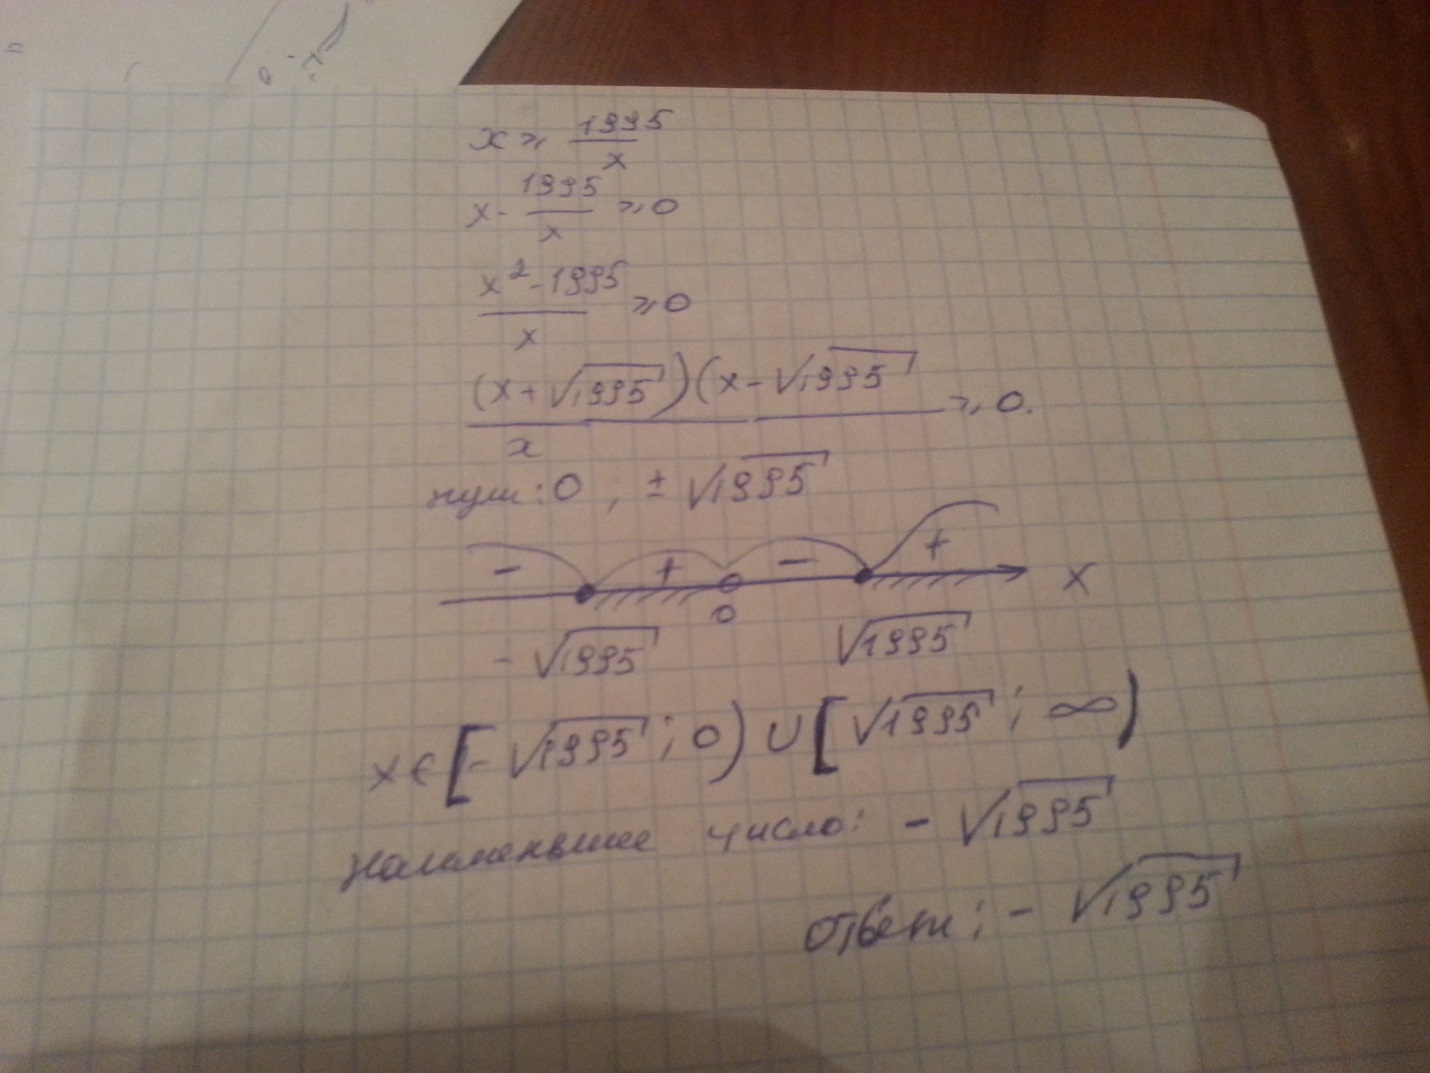 x ⩾ 1995/x
x - 1995/x ⩾ 0
(x² - 1995)/x ⩾ 0
((x + √1995)(x - √1995))/x ⩾ 0.
нули: 0 ; ± √1995
- + - + x
- √1995 0 √1995
x ∈ [- √1995 ; 0) ∪ [√1995 ; ∞)
наименьшее число: - √1995
ответ: - √1995